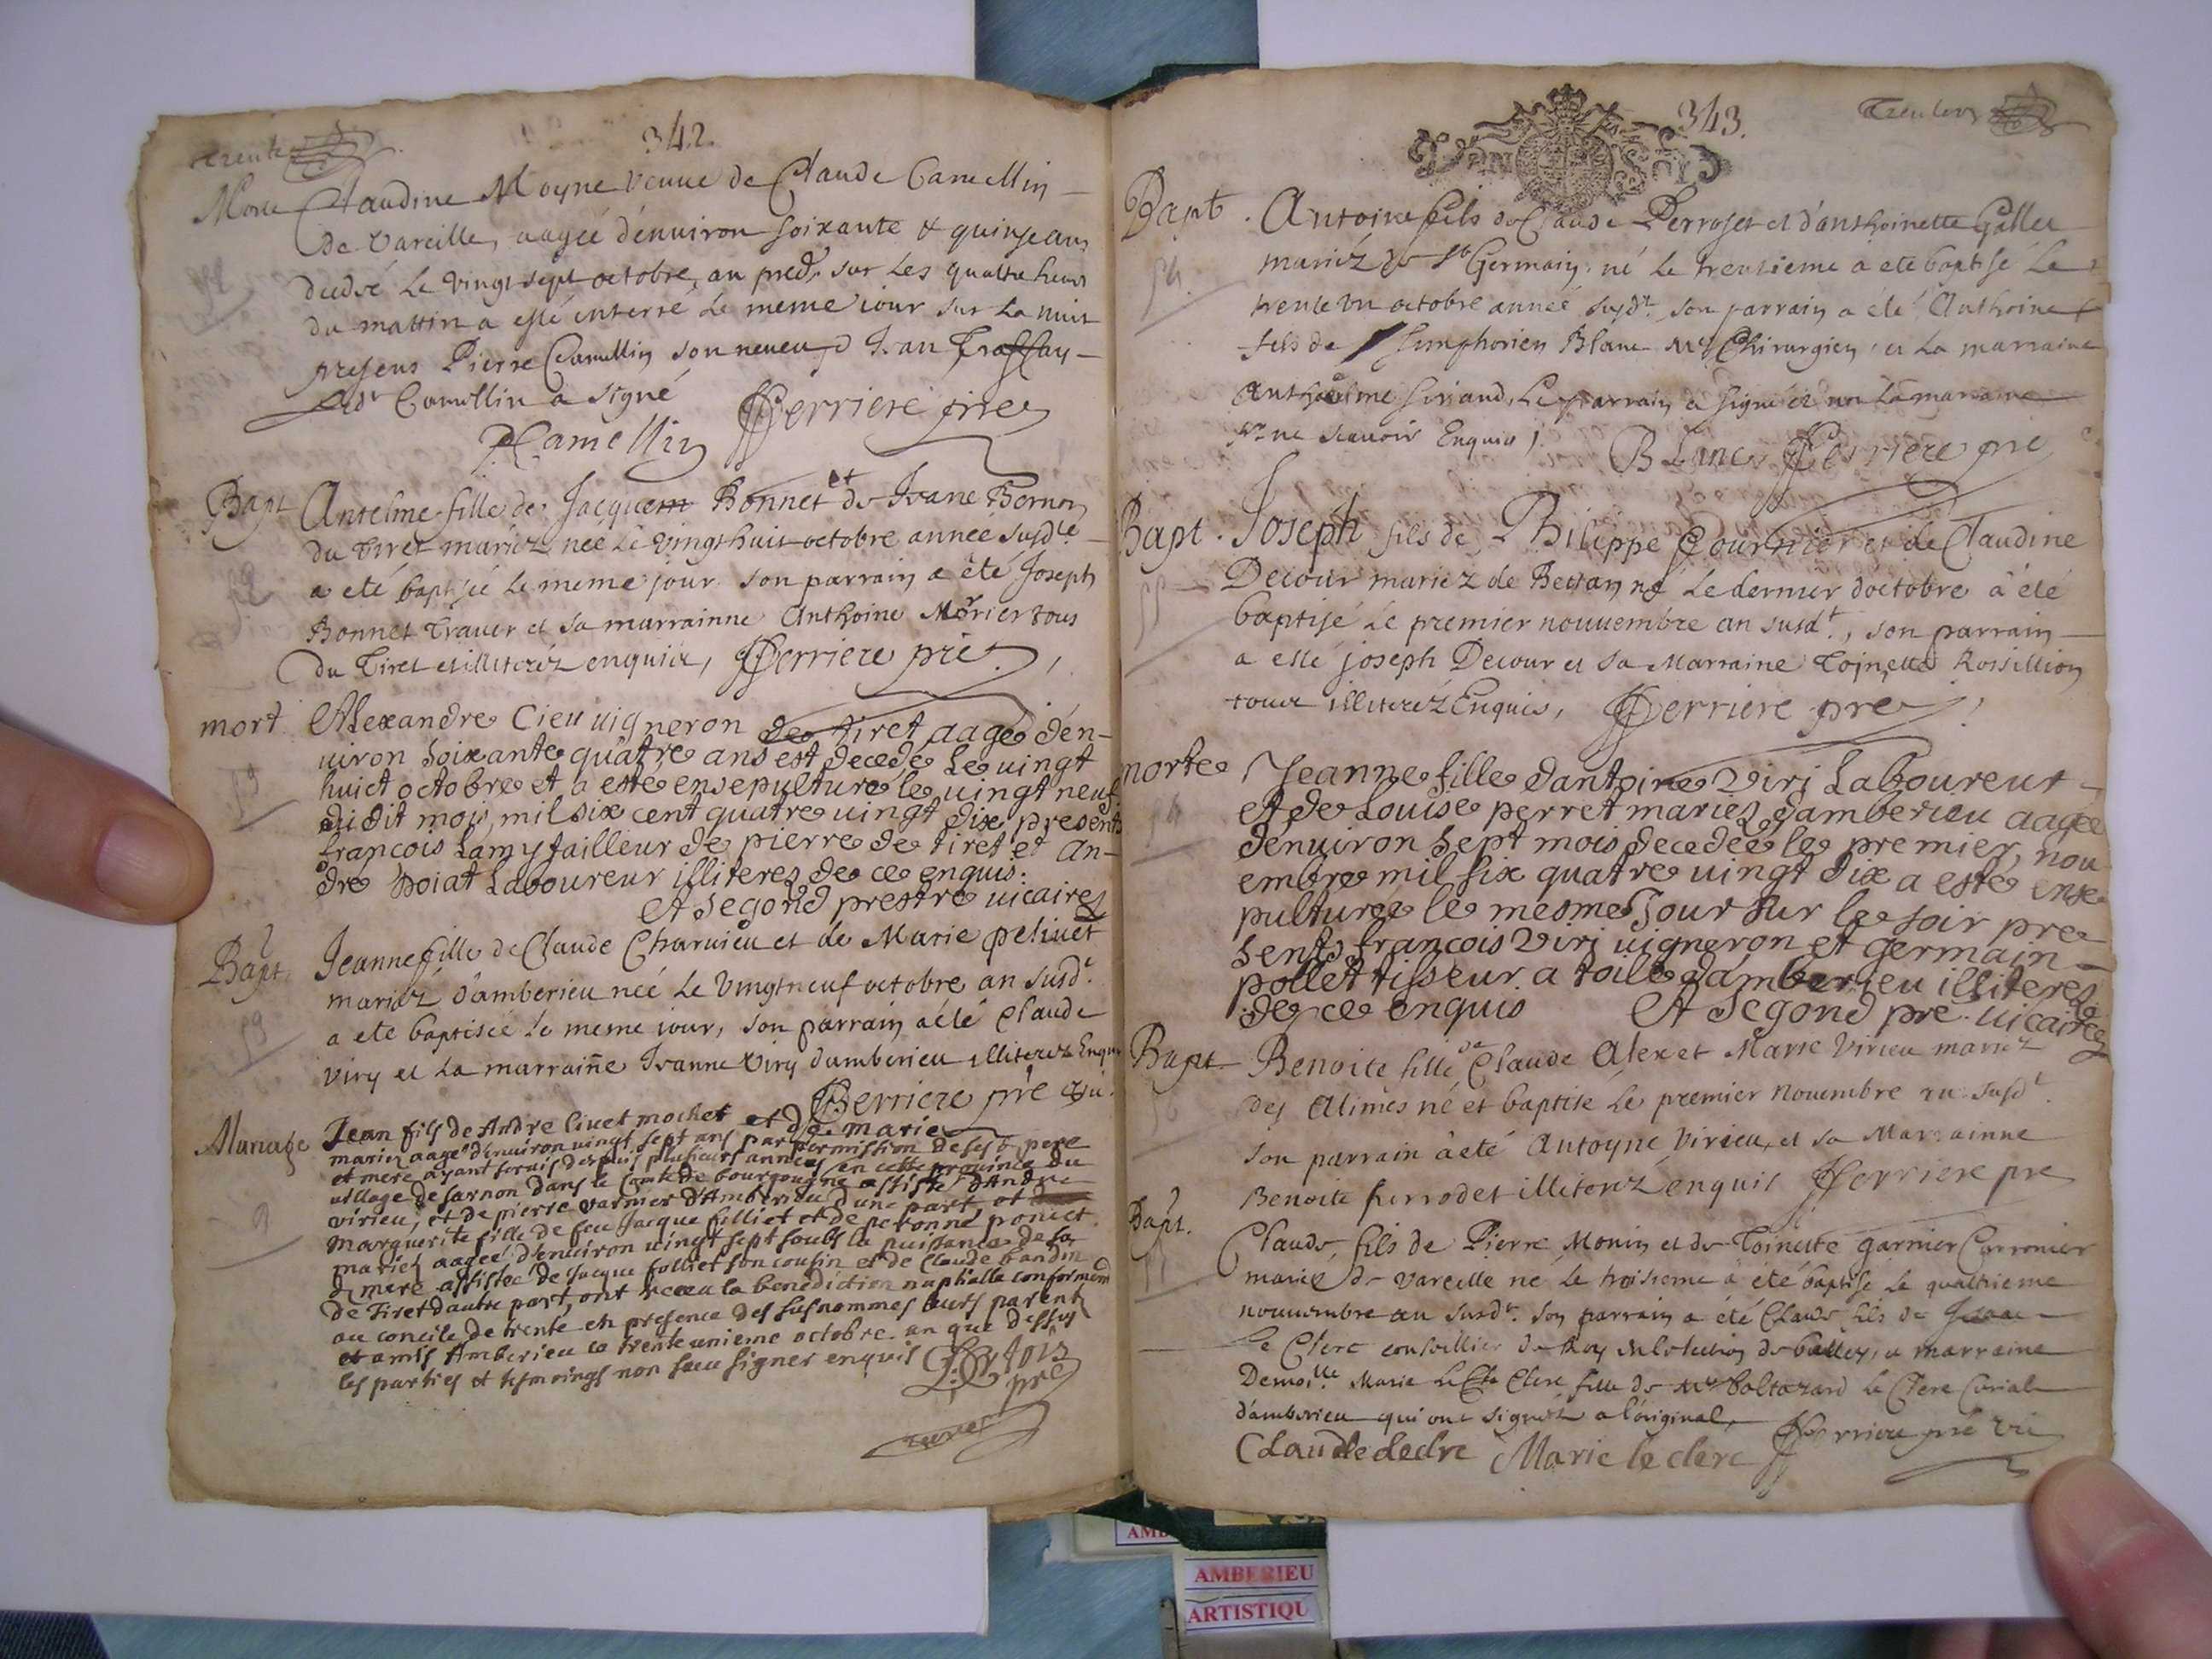 trente
342.
Morte Claudine Moyne veuue de Claude Camellin
de Vareille, aagée d'enuiron soixante & quinze ans
decedée Le vingt sept octobre, an pred.t sur Les quattre heures
du mattin a esté enterré Le meme iour sur La nuit
presens Pierre Camellin son neueu, Ian
Led.t Camellin a signé
PCamellin fferriere pre
Bapt Anselme fille de Jacquem Bonnet et de Ivane Bernon
du Tiret mariez née Le Vingt huit octobre année susdte
a eté baptisée Le meme jour son parrain a été Joseph
Bonnet Trauer et sa marrainne Anthoine Morier tous
du Tiret et illiteréz enquis, fferriere pre.
mort Alexandre Cieu uigneron de tiret aagé d'en-
uiron soixante quatre ans est decede Le uingt
huict octobre et a este ensepulturé le uingt neuf
du dit mois, mil six cent quatre uingt dix presents
francois Lamy tailleur de pierre de tiret et an-
dre boiat Laboureur illiteres de ce enquis.
A Segond prestre uicaire
Bapt. Jeanne fille de Claude Charuieu et de Marie peliuet
mariéz d'amberieu née Le Vingtneuf octobre an susd.t
a eté baptisée Le meme iour, son parrain a été Claude
Viry et La marrainne Ivanne Viry d'amberieu illiterez Enquis
fferriere pre vi.
Mariage Jean fils de Andre liuet mochet et de marie
mariez aagé d'enuiron uingt sept ans par permission de ses d pere
et mere ayant serui despuis plusieurs années en cette prouince du
uillage de sarnon dans le Comté de bourgougne assisté d'Andre
virieu, et de pierre varnier d'Amberieu d'une part, et
marguerite fille de feu Jacque folliet et de peronne poncet
mariez aagée d'enuiron uingt sept soubs la puissance de sa
d mere assistée de Jacque folliet son cousin et de Claude bandin
de Tiret d'autre part, ont receu la benediction nuptialle conformement
au concile de trente en presence des susnommes leurs parents
et amis Amberieu le trente unieme octobre an que dessus
les parties et tesmoings non sceu signer enquis
pre
343.
Bapt. Antoine fils de Claude Perroset et d'anthoinette Gallet
mariéz de St Germain, né Le trentieme a eté baptisé Le
trente vn octobre année susd.t son parrain a été Anthoine
fils de Simphorien Blanc Me Chirurgien, et La marraine
Anthoelme siraud, Le parrain a signé et non La marraine
pr ne scauoir Enquis
BLanc fferriere pre
Bapt. Joseph fils de Philippe Fournier et de Claudine
Decour mariez de Bettan né Le dernier d'octobre a été
baptisé Le premier nouuembre an susd.t, son parrain
a esté joseph Decour et sa Marraine Toinette Rossillion
tous illiteréz Enquis, fferriere pre
morte Jeanne fille d'antoine Viri Laboureur
et de Louise perret mariez d'amberieu aagée
d'enuiron sept mois decedée le premier nou
embre mil six quatre uingt dix a esté ense
pulturee le mesme Jour sur le soir pre
sents francois Viri uigneron et germain
pollet tisseur a toile d'amberieu illiteres
de ce enquis A Segond pre. uicaire
Bapt Benoite fille de Claude Alex et Marie Virieu mariez
des Alimes né et baptisé Le premier Nouembre an susd.t
son parrain a été Antoyne Virieu, et sa Marrainne
Benoite ferrodet illiteréz enquis fferriere pre
Bapt. Claude, fils de Pierre Monin et de Toinette garnier
marié de Vareille né Le troisieme a été baptisé Le quattrieme
nouuembre an susd.t son parrain a été Claude fils de
Le Clerc conseillier du Roy en L'election de belley, et marraine
Demoi.lle Marie Le Clerc fille de Me baltazard Le Clerc Curial
d'amberieu qui ont signéz a l'original,
Claude leclrc Marie le clerc fferriere pre vi
AMBERIEU
ARTISTIQU